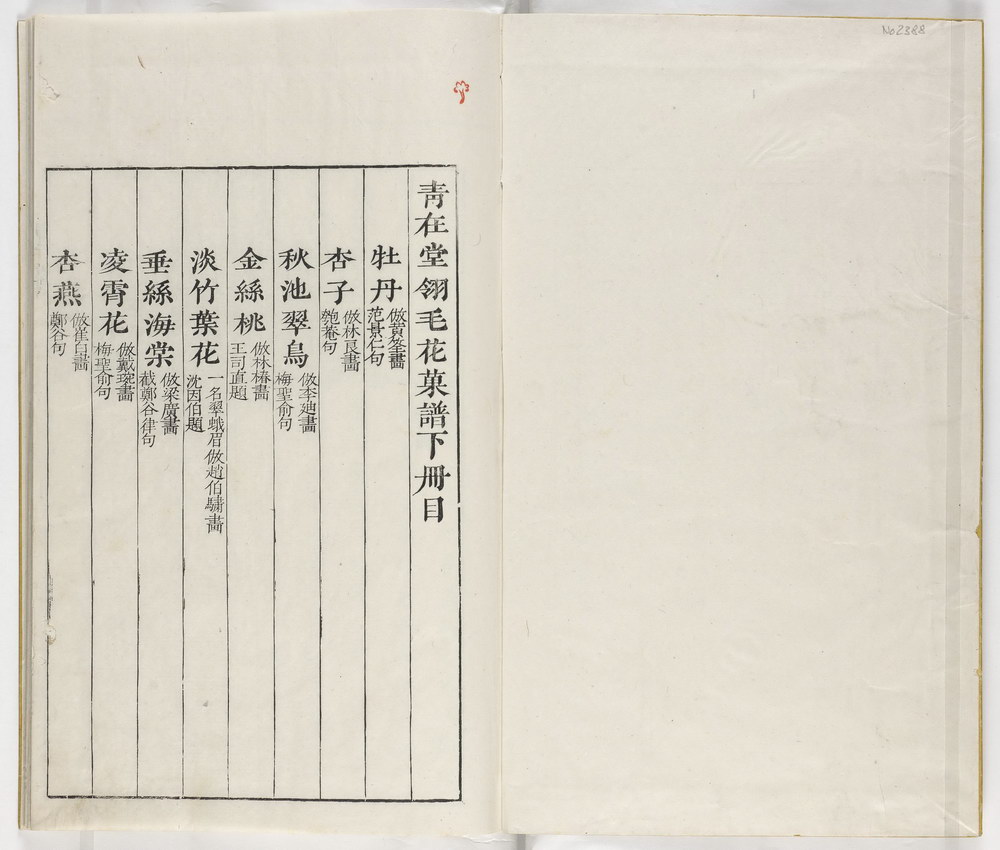 No2388
靑在堂翎毛花菓譜下冊目
牡丹
倣黃筌畵
范景仁句
杏子
倣林良畵
匏菴句
秋池翠鳥
倣李迪畵
梅聖俞句
金絲桃
倣林椿畵
王司直題
淡竹葉花
一名翠蛾眉倣趙伯驌畵
沈因伯題
垂絲海棠
倣梁廣畵
截鄭谷律句
凌霄花
倣戴琬畵
梅聖俞句
杏燕
倣崔白畵
鄭谷句